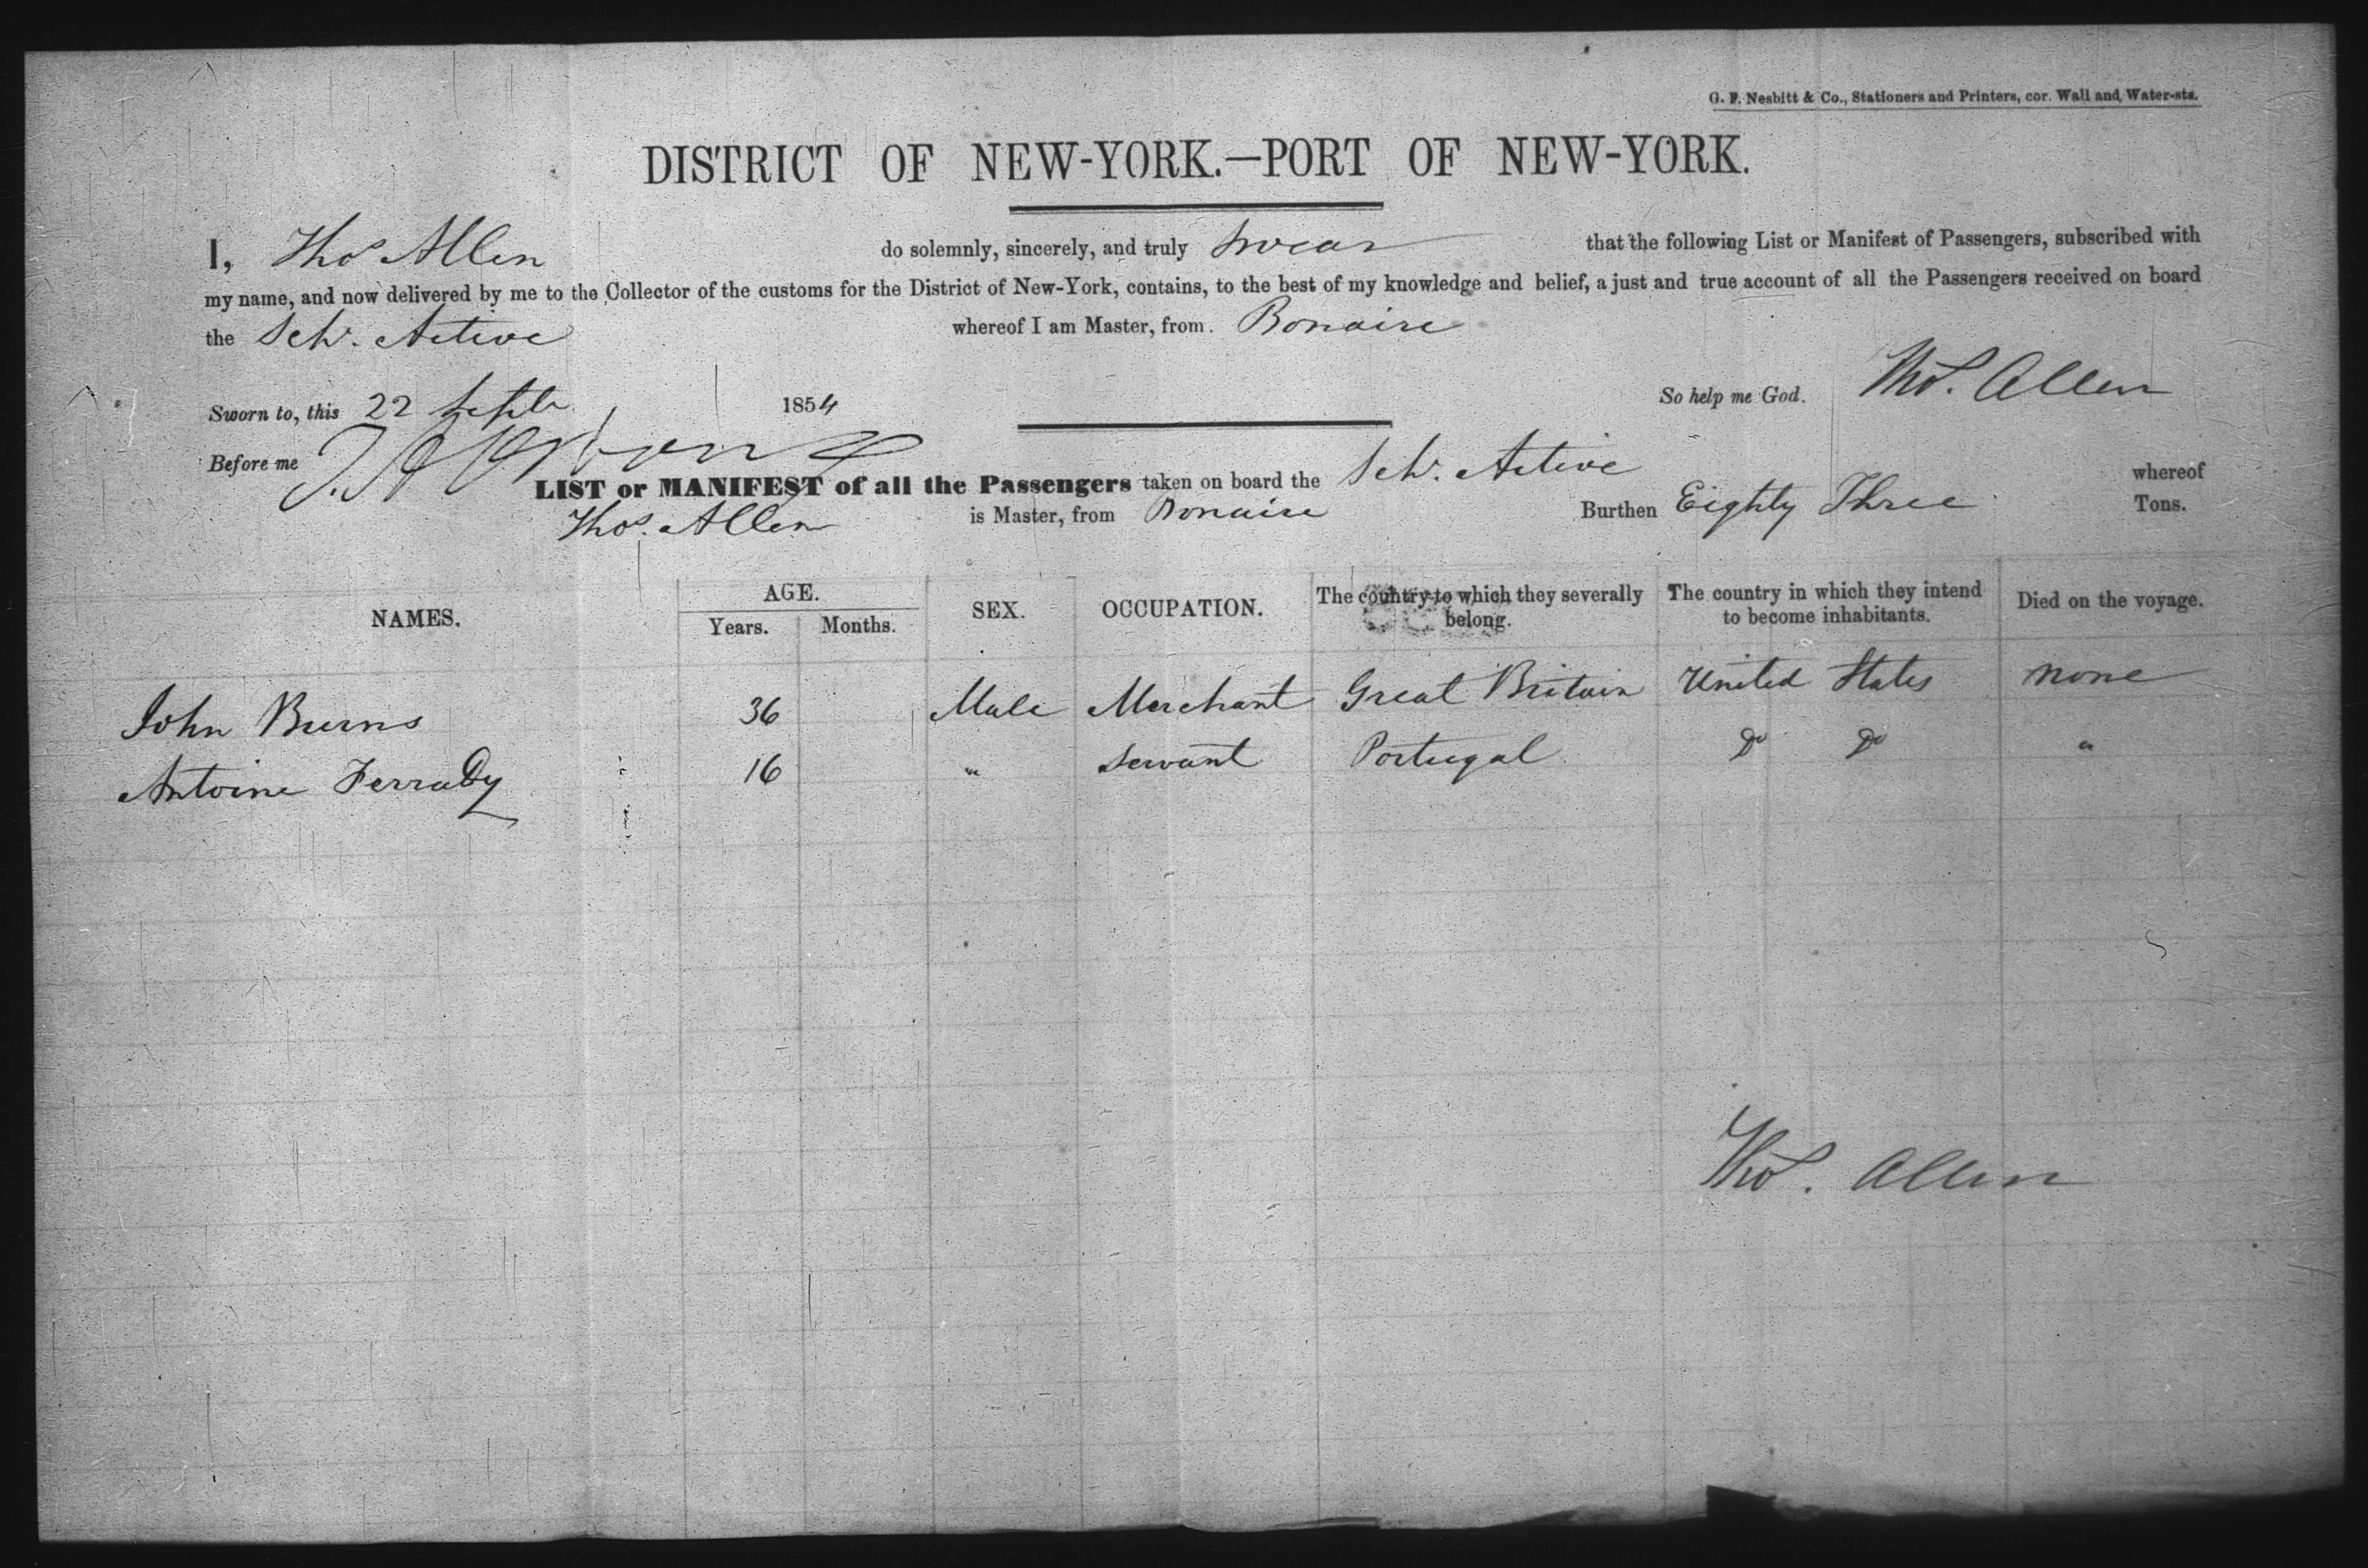 G. F. Nesbitt & Co., Stationers and Printers, cor. Wall and Water-sts.
DISTRICT OF NEW-YORK.—PORT OF NEW-YORK.
I, Thos Allen do solemnly, sincerely, and truly swear that the following List or Manifest of Passengers, subscribed with
my name, and now delivered by me to the Collector of the customs for the District of New-York, contains, to the best of my knowledge and belief, a just and true account of all the Passengers received on board
the Schr. Active whereof I am Master, from Bonaire
Sworn to, this 22 Septbr 1854 So help me God. Thos. Allen
Before me
LIST or MANIFEST of all the Passengers taken on board the Schr. Active whereof
Thos. Allen is Master, from Bonaire Burthen Eighty Three Tons.
NAMES. AGE. Years. Months. SEX. OCCUPATION. The country to which they severally belong. The country in which they intend to become inhabitants. Died on the voyage.
John Burns 36 Male Merchant Great Britain United States none
Antoine FerraDy 16 " servant Portugal Do Do "
Thos. Allen